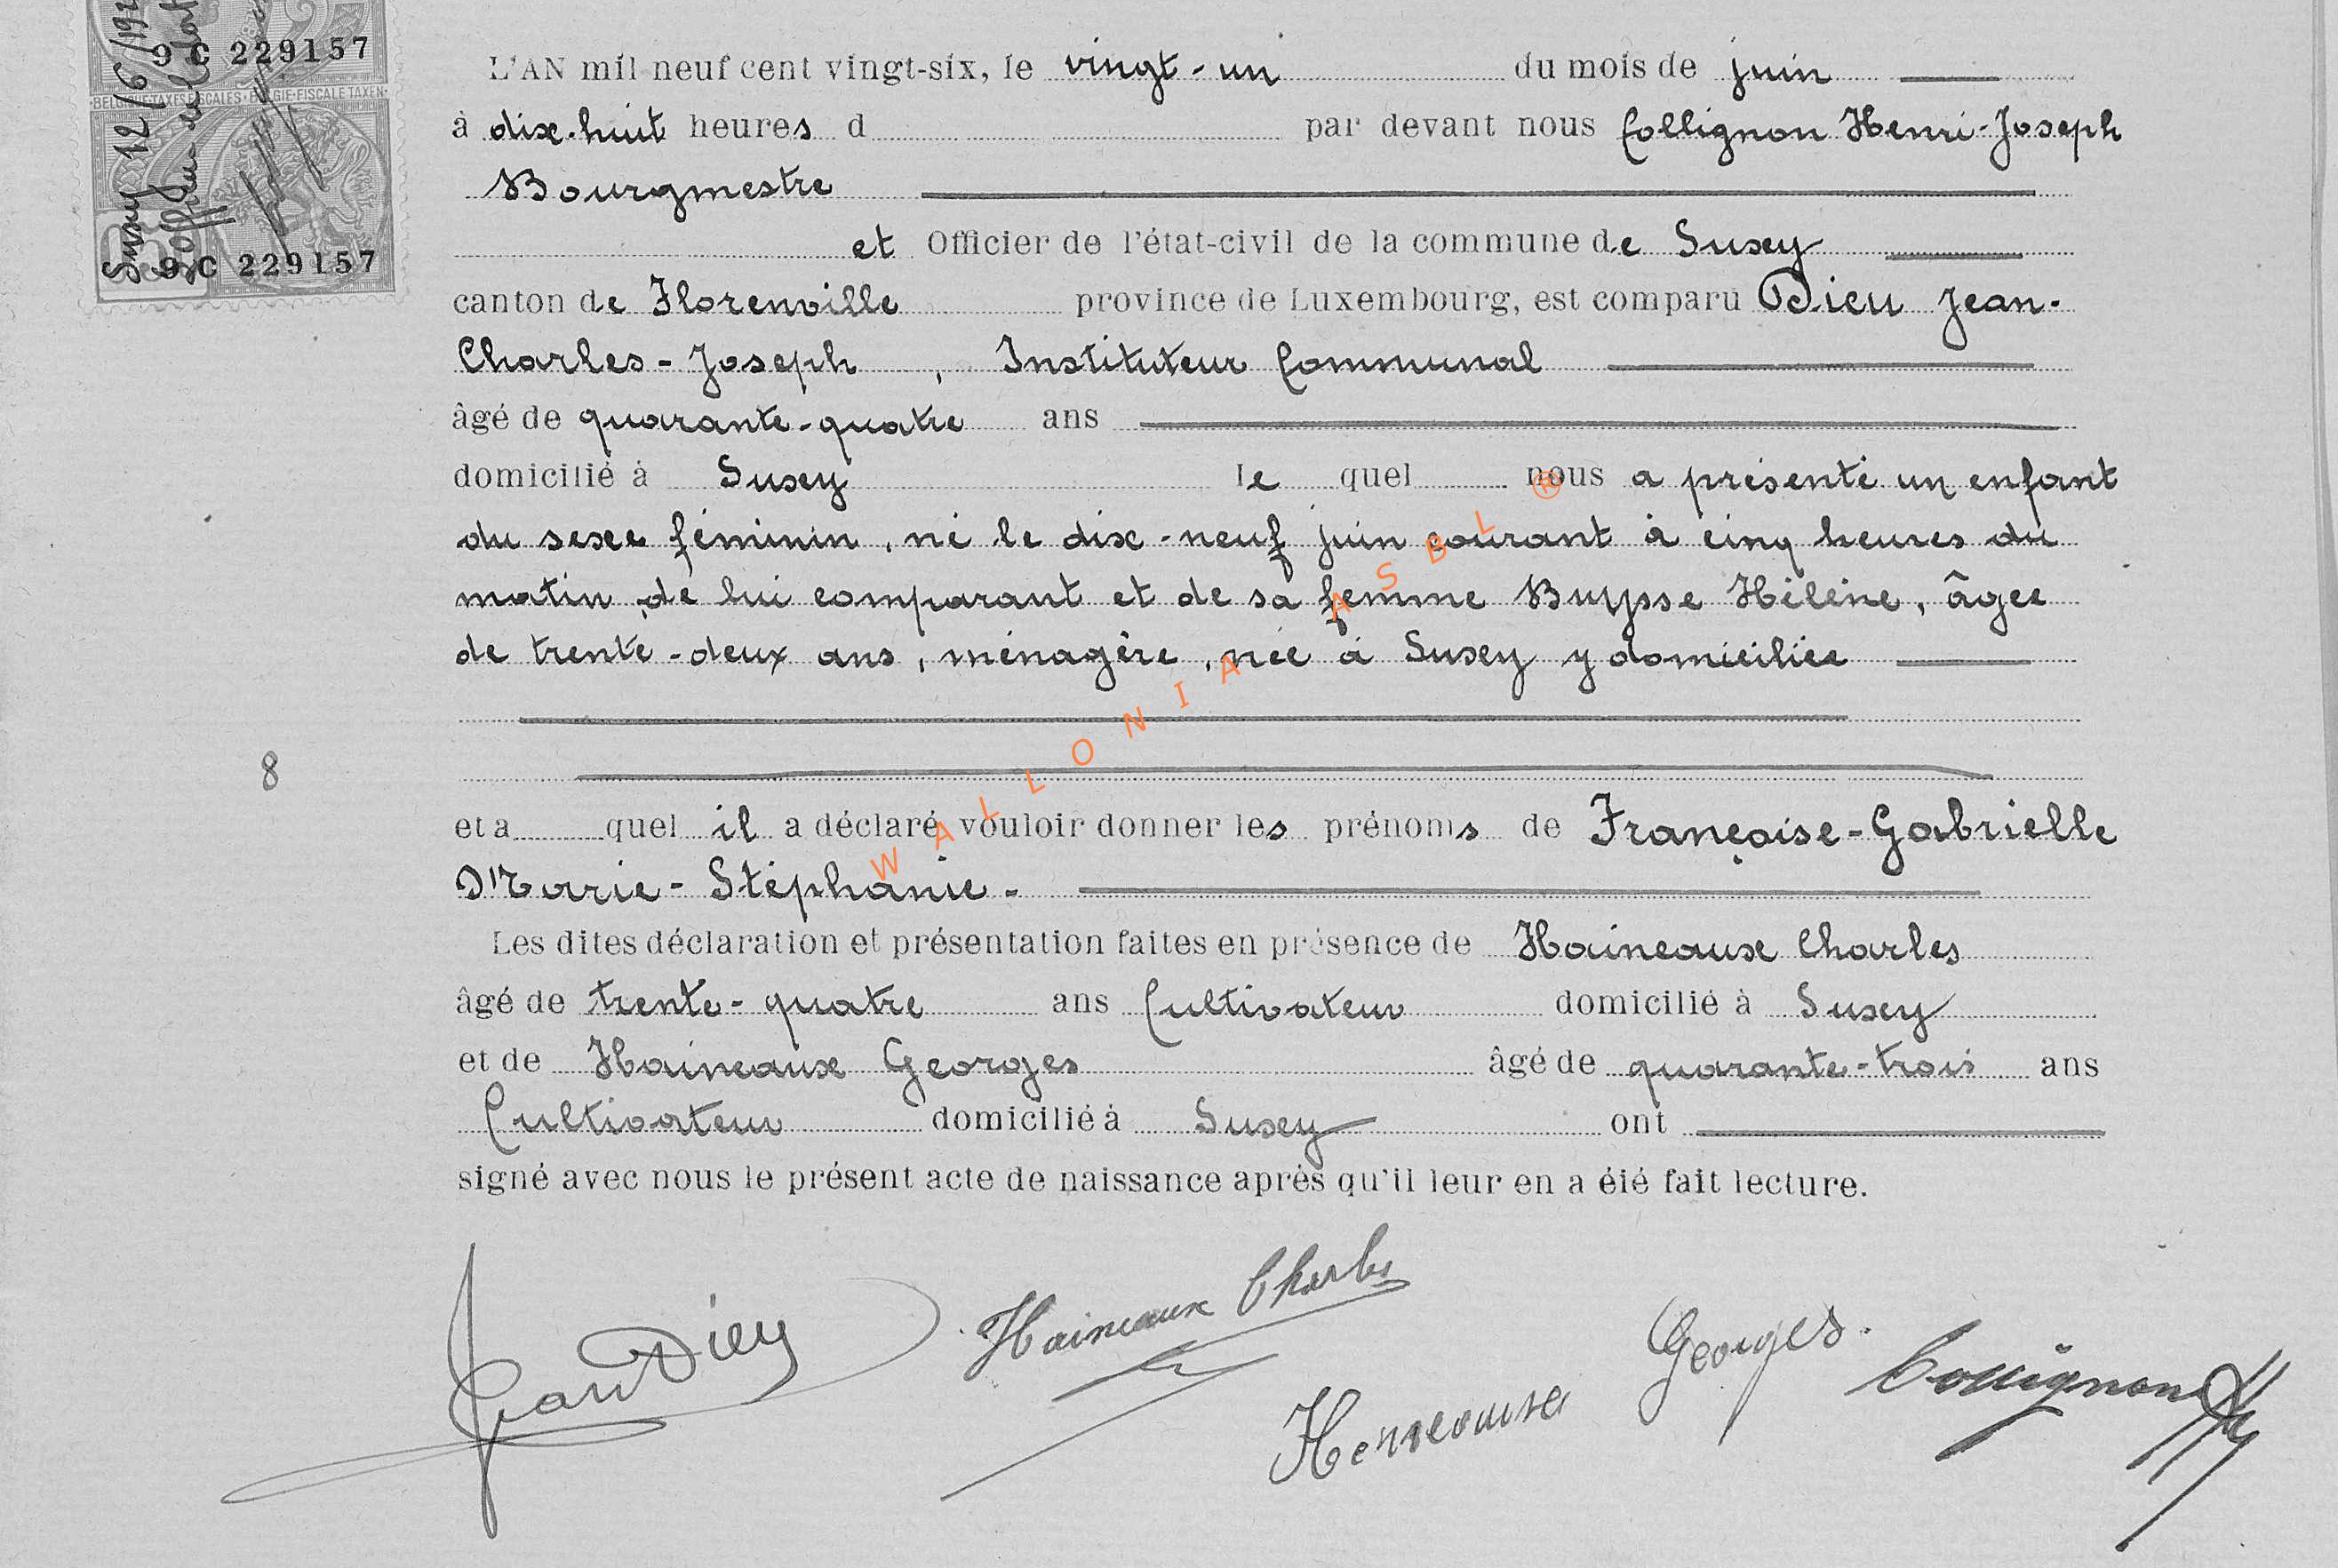 9 C 229157
BELGIQUE-TAXES FISCALES · BELGIE-FISCALE TAXEN
9 C 229157
Suxy 12/6/192
L'AN mil neuf cent vingt-six, le vingt-un du mois de juin
à dix-huit heures d par devant nous Collignon Henri-Joseph
Bourgmestre
et Officier de l'état-civil de la commune de Suxy
canton de Florenville province de Luxembourg, est comparu Dieu Jean-
Charles-Joseph, Instituteur Communal
âgé de quarante-quatre ans
domicilié à Suxy le quel nous a présenté un enfant
du sexe féminin, né le dix-neuf juin courant à cinq heures du
matin, de lui comparant et de sa femme Buysse Hélène, âgée
de trente-deux ans, ménagère, née à Suxy y domiciliée
8
et a quel il a déclaré vouloir donner les prénoms de Françoise-Gabrielle
Marie-Stéphanie-
Les dites déclaration et présentation faites en présence de Haineaux Charles
âgé de trente-quatre ans Cultivateur domicilié à Suxy
et de Haineaux Georges âgé de quarante-trois ans
Cultivateur domicilié à Suxy ont
signé avec nous le présent acte de naissance après qu'il leur en a été fait lecture.
Jean Dieu
Haineaux Charles
Georges
Collignon
WALLONIA ASBL ®